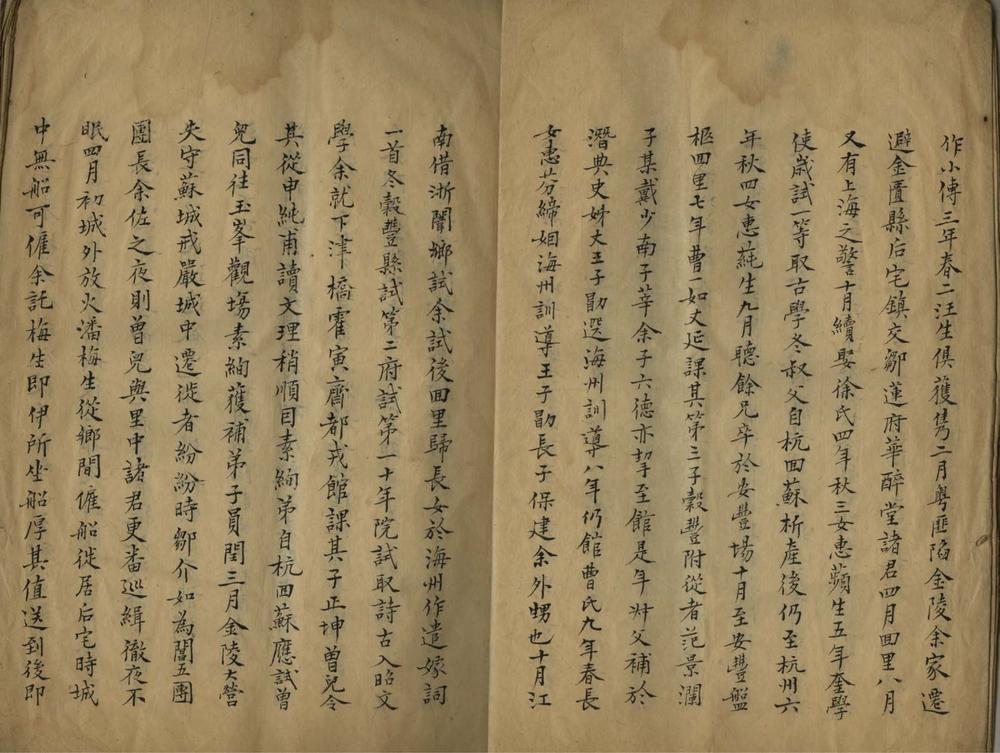 作小傳三年春二汪生俱獲雋二月粵匪陷金陵余家遷
避金匱縣后宅鎮交鄒蓮府華醉堂諸君四月回里八月
又有上海之警十月續娶徐氏四年秋三女惠蘋生五年奎學
使歲試一等取古學冬叔父自杭回蘇析產後仍至杭州六
年秋四女惠蒓生九月聽餘兄卒於安豐場十月至安豐盤
柩回里七年曹一如丈延課其第三子榖豐附從者范景瀾
子某戴少南子莘余子六德亦挈至館是年叔父補於
潛典史姊丈王子勖選海州訓導八年仍館曹氏九年春長
女惠芬締姻海州訓導王子勖長子保建余外甥也十月江
南借浙闈鄉試余試後回里歸長女於海州作遣嫁詞
一首冬榖豐縣試第二府試第一十年院試取詩古入昭文
學余就下津橋霍寅齋都戎館課其子正坤曾兒令
其從申純甫讀文理稍順目素絢弟自杭回蘇應試曾
兒同往玉峯觀場素絢獲補弟子員閏三月金陵大營
失守蘇城戒嚴城中遷徙者紛紛時鄒介如為閶五團
團長余佐之夜則曾兒與里中諸君更番巡緝徹夜不
眠四月初城外放火潘梅生從鄉間僱船徙居后宅時城
中無船可僱余託梅生即伊所坐船厚其值送到後即